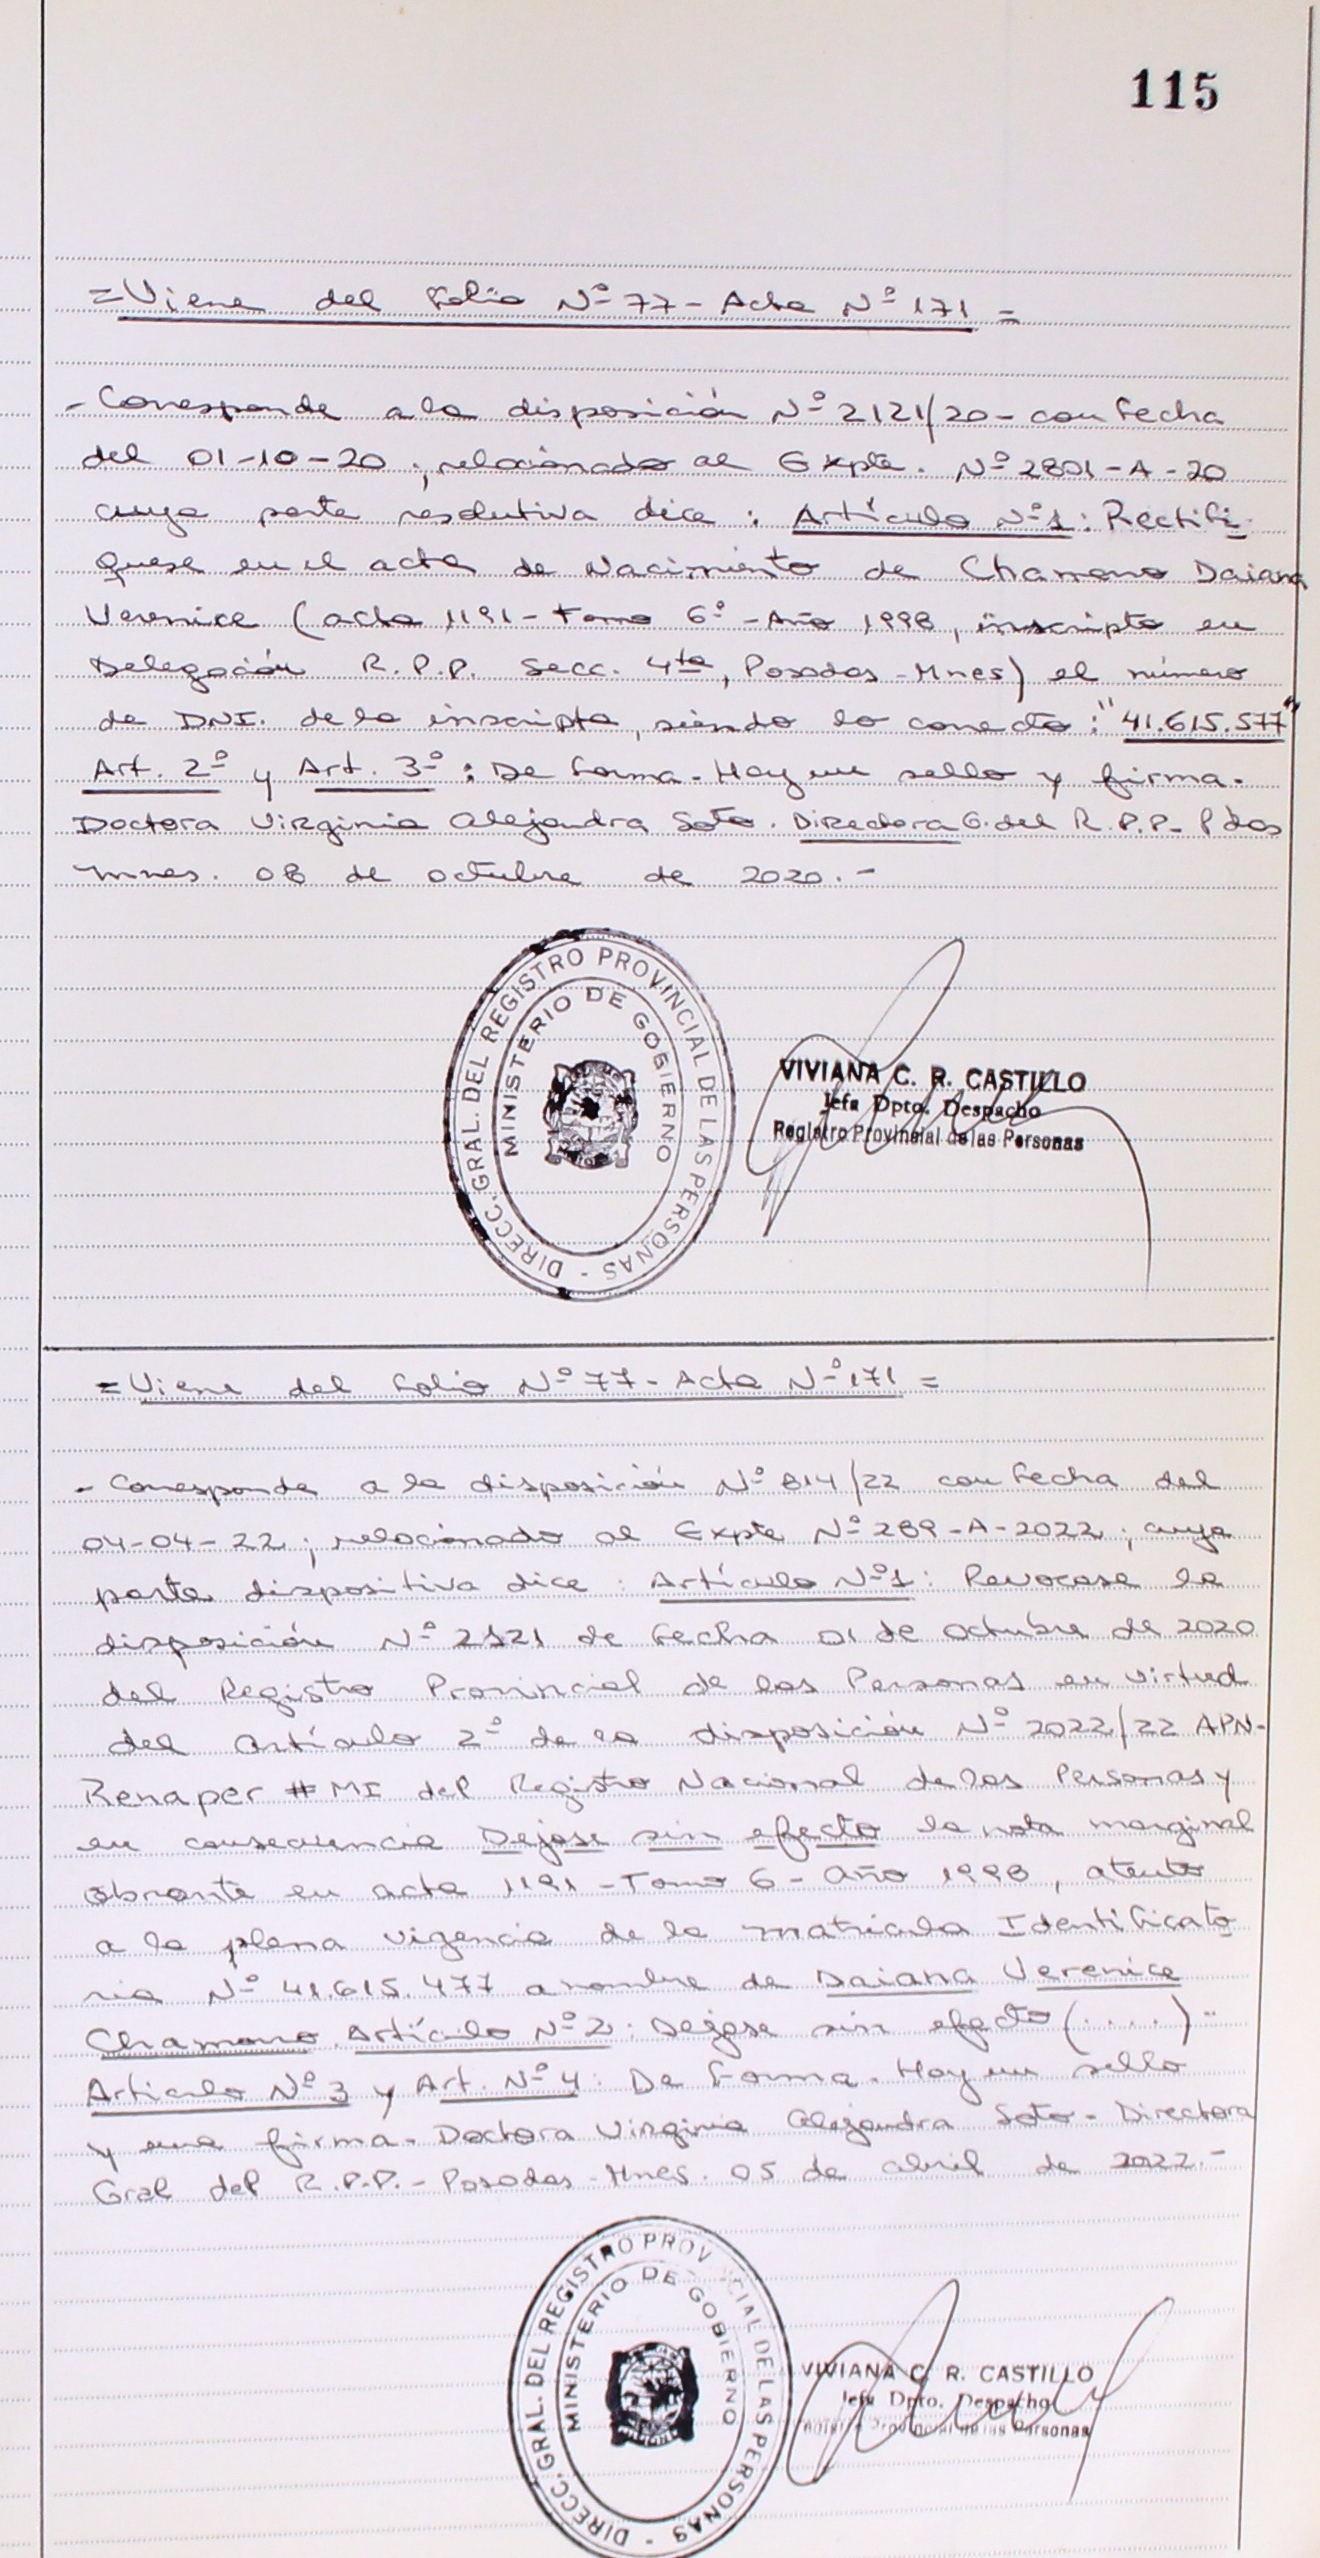 115
=Viene del Folio Nº 77- Acta Nº 171 =
- Corresponde a la disposición Nº 2121/20- con fecha
del 01-10-20; relacionado al Expte. Nº 2801-A-20
cuya parte resolutiva dice: Artículo Nº1: Rectifí-
quese en el acta de Nacimiento de Chamorro Daiana
Verenice (acta 1191- Tomo 6º -Año 1998, inscripta en
Delegación R.P.P. Secc. 4ta, Posadas -Mnes) el número
de DNI. de la inscripta, siendo lo correcto: "41.615.577"
Art. 2º y Art. 3º: De forma. Hay un sello y firma.
Doctora Virginia Alejandra Soto. Directora G. del R.P.P- Pdas
Mnes. 08 de octubre de 2020.-
DIRECC. GRAL. DEL REGISTRO PROVINCIAL DE LAS PERSONAS -
MINISTERIO DE GOBIERNO
VIVIANA C. R. CASTILLO
Jefa Dpto. Despacho
Registro Provincial de las Personas
=Viene del Folio Nº 77- Acta Nº 171 =
- Corresponde a la disposición Nº 814/22 con fecha del
04-04-22; relacionado al Expte Nº 289-A-2022; cuya
parte dispositiva dice: Artículo Nº1: Revocase la
disposición Nº 2121 de fecha 01 de octubre de 2020
del Registro Provincial de las Personas en virtud
del artículo 2º de la disposición Nº 2022/22 APN-
Renaper #MI del Registro Nacional de las Personas y
en consecuencia Dejase sin efecto la nota marginal
obrante en acta 1191 -Tomo 6- Año 1998, atento
a la plena vigencia de la matrícula Identificato
ria Nº 41.615.477 a nombre de Daiana Verenice
Chamorro. Artículo Nº2: Dejase sin efecto (....)-
Artículo Nº3 y Art. Nº4: De forma. Hay un sello
y una firma. Doctora Virginia Alejandra Soto- Directora
Gral del R.P.P.- Posadas -Mnes. 05 de abril de 2022.-
DIRECC. GRAL. DEL REGISTRO PROV CIAL DE LAS PERSONAS -
MINISTERIO DE GOBIERNO
VIVIANA C. R. CASTILLO
Jefa Dpto. Despacho
Provincial de las Personas